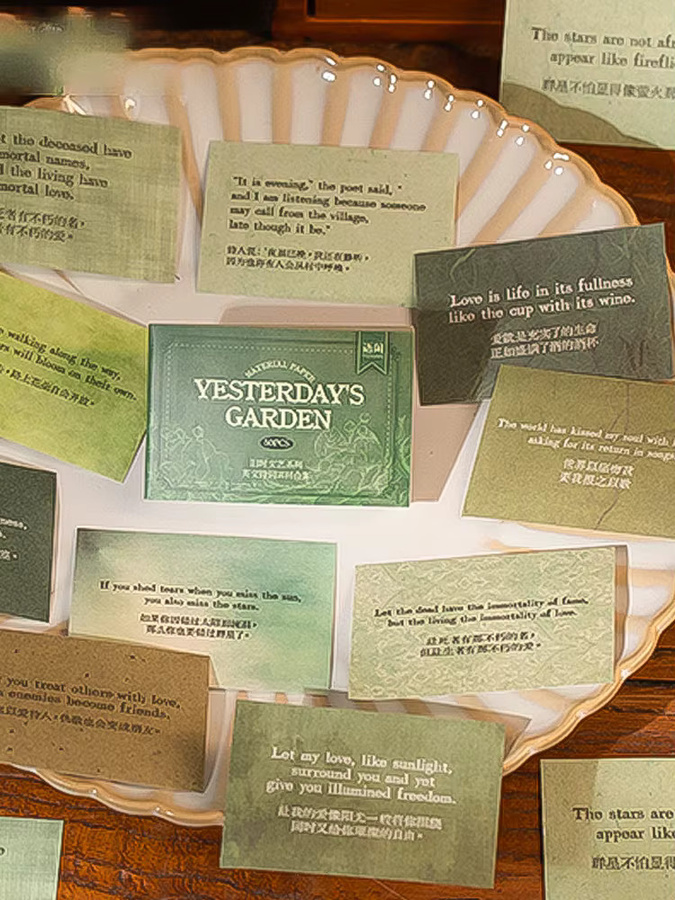 The stars are not afr
appear like firefli
群星不怕显得像萤火
t the deceased have
mortal names,
d the living have
mortal love.
者有不朽的名，
者有不朽的爱。
"It is evening," the poet said, "
and I am listening because someone
may call from the village,
late though it be."
诗人说："夜虽已晚，我还在静听，
因为也许有人会从村中呼唤。
Love is life in its fullness
like the cup with its wine.
爱就是充实了的生命
正如盛满了酒的酒杯
walking along the way,
rs will bloom on their own.
MATERIAL PAPER
YESTERDAY'S
GARDEN
60PCS
旧时文艺系列
The world has kissed my soul with
asking for its return in songs
世界以痛吻我
要我报之以歌
If you shed tears when you miss the sun,
you also miss the stars.
如果你因错过太阳而流泪，
那么你也要错过群星了。
Let the dead have the immortality of fame,
but the living the immortality of love.
让死者有那不朽的名，
但让生者有那不朽的爱。
you treat others with love,
enemies become friends.
以爱待人，仇敌也会变成朋友。
Let my love, like sunlight,
surround you and yet
give you illumined freedom.
让我的爱像阳光一般将你围绕
同时又给你璀璨的自由。
The stars are
appear like
群星不怕显得